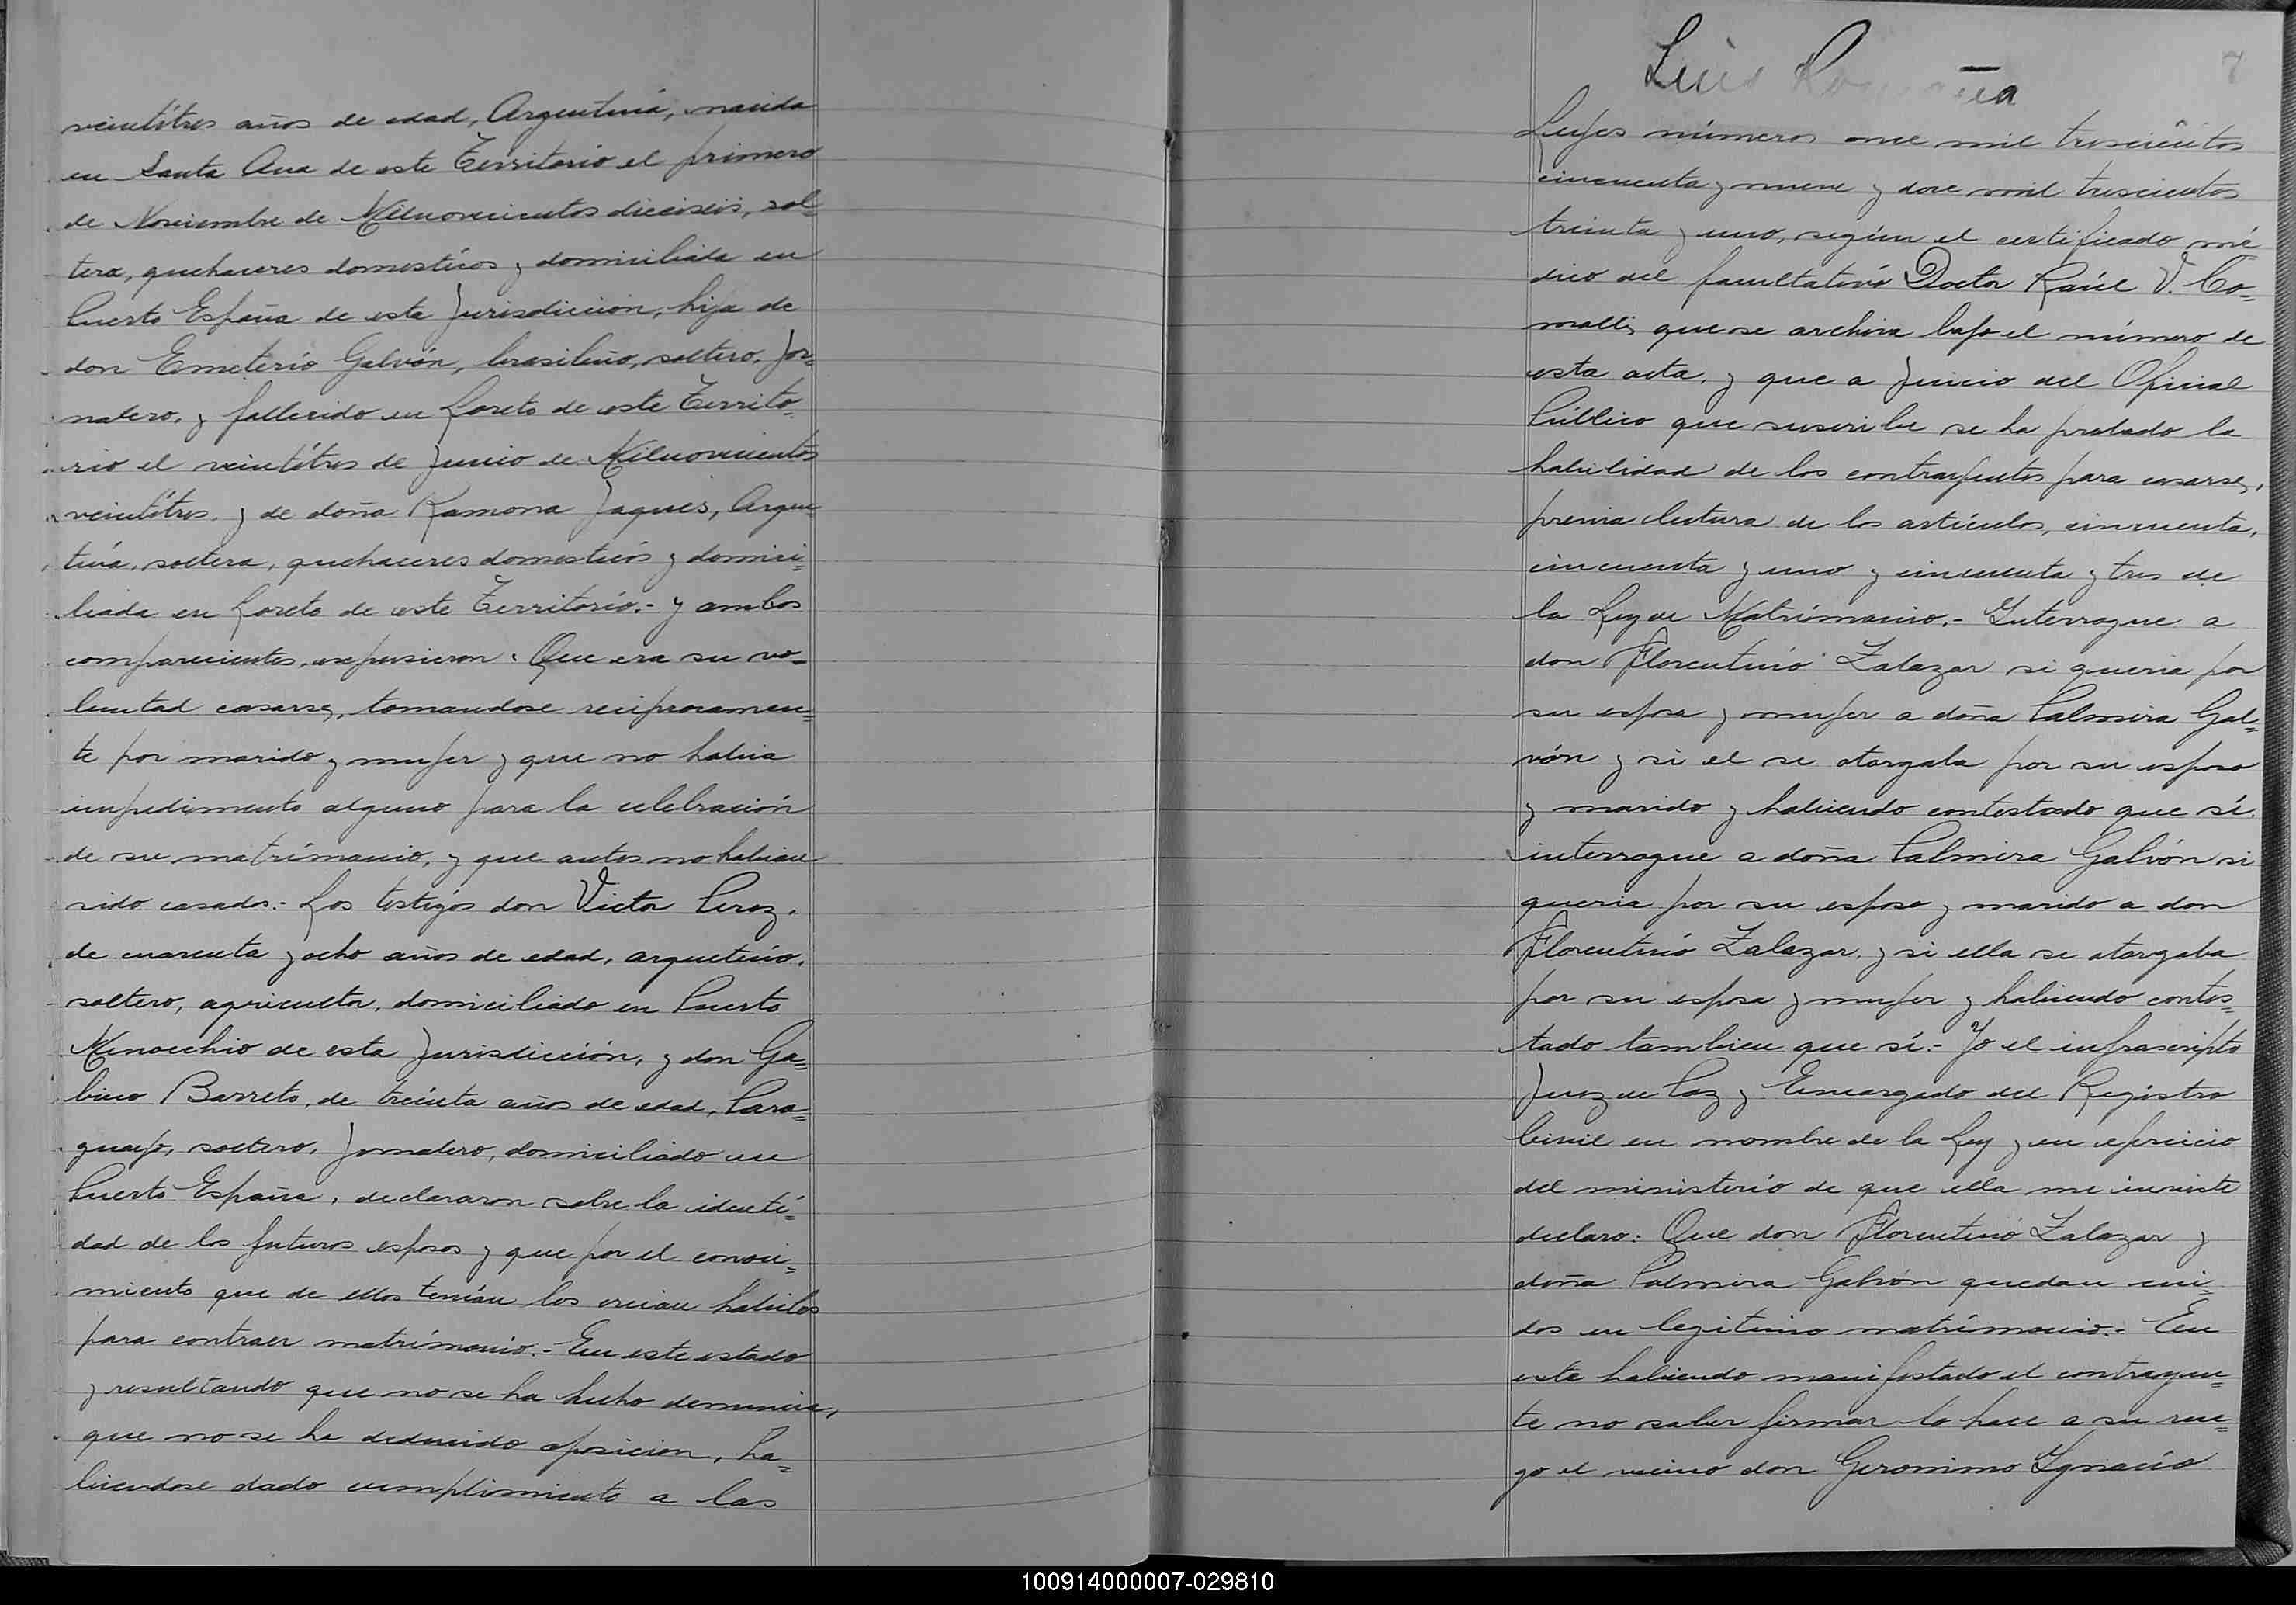 veintitres años de edad, Argentina, nacida
en Santa Ana de este Territorio el primero
de Noviembre de Milnovecientos dieciseis, sol=
tera, quehaceres domesticos y domiciliada en
Puerto España de esta Jurisdicción, hija de
don Emeterio Galvón, brasileño, soltero, Jor=
nalero, y fallecido en Loreto de este Territo=
rio el veintitres de Junio de Milnovecientos
veintitres y de doña Ramona Jaques, Argen
tina, soltera, quehaceres domesticos y domici=
liada en Loreto de este Territorio.- y ambos
comparecientes, expusieron: Que era su vo=
luntad casarse, tomandose reciprocamen=
te por marido y mujer y que no habia
impedimento alguno para la celebración
de su matrimonio, y que antes no habian
sido casados.- Los testigos don Victor Perez,
de cuarenta y ocho años de edad, argentino,
soltero, agricultor, domiciliado en Puerto
Minocchio de esta Jurisdicción, y don Ga=
bino Barreto, de treinta años de edad, Para=
guayo, soltero, Jornalero, domiciliado en
Puerto España, declararon sobre la identi=
dad de los futuros esposos y que por el conoci=
miento que de ellos tenían los creian habiles
para contraer matrimonio.- En este estado
y resultando que no se ha hecho denuncia,
que no se ha deducido oposicion, ha=
biendose dado cumplimiento a las
Luis
7
Leyes números once mil trescientos
cincuenta y nueve y doce mil trescientos
treinta y uno, según el certificado mé
dico del facultativo Doctor Raúl V. Co=
malli, que se archiva bajo el número de
esta acta, y que a Juicio del Oficial
Público que suscribe se ha probado la
habilidad de los contrayentes para casarse,
previa lectura de los artículos, cincuenta,
cincuenta y uno y cincuenta y tres de
la Ley de Matrimonio.- Interrogue a
don Florentino Zalazar si queria por
su esposa y mujer a doña Palmira Gal=
vón y si el se otorgaba por su esposo
y marido y habiendo contestado que sí.
interrogue a doña Palmira Galvón si
queria por su esposo y marido a don
Florentino Zalazar, y si ella se otorgaba
por su esposa y mujer y habiendo contes=
tado tambien que sí.- Yo el infrascripto
Juez de Paz y Encargado del Registro
Civil en nombre de la Ley y en ejercicio
del ministerio de que ella me inviste
declaro: Que don Florentino Zalazar y
doña Palmira Galvón quedan uni=
dos en legitimo matrimonio.- En
este habiendo manifestado el contrayen=
te no saber firmar lo hace a su rue=
go el vecino don Geronimo Ignacio
100914000007-029810